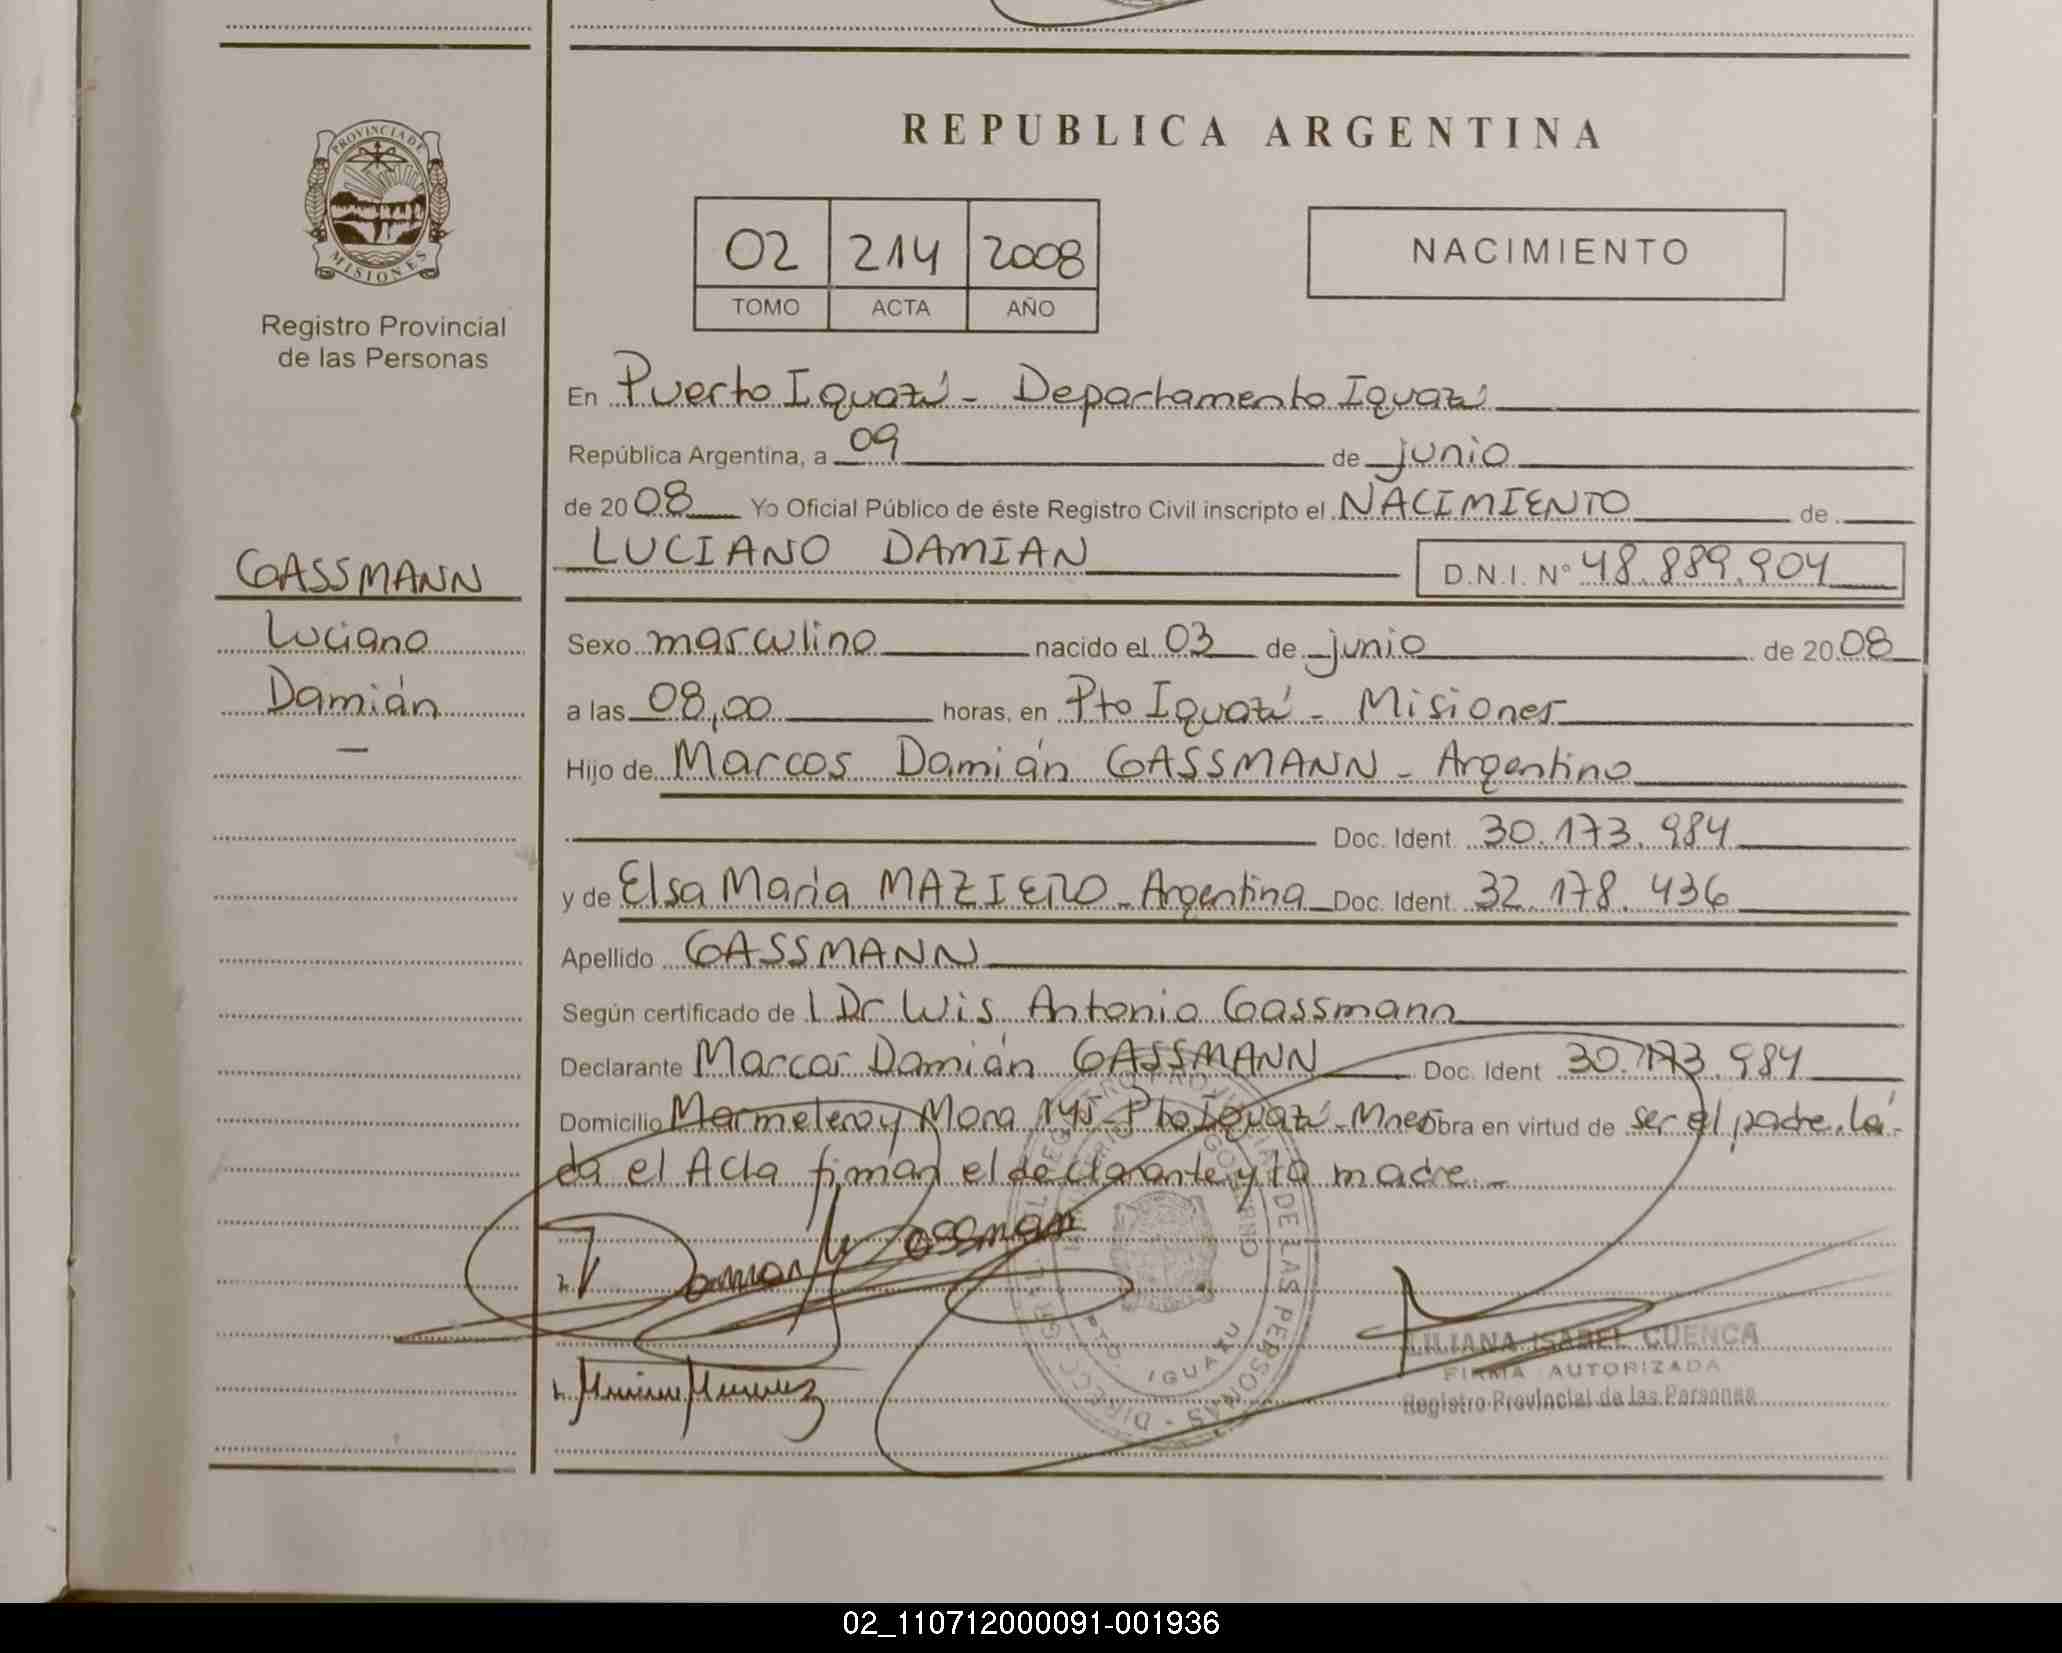 REPUBLICA ARGENTINA
PROVINCIA DE MISIONES
Registro Provincial
de las Personas
02 214 2008
TOMO ACTA AÑO
NACIMIENTO
En Puerto Iguazú - Departamento Iguazú
República Argentina, a 09 de junio
de 2008 Yo Oficial Público de éste Registro Civil inscripto el NACIMIENTO de
LUCIANO DAMIAN D.N.I. N° 48.889.904
GASSMANN
Luciano
Damián
Sexo masculino nacido el 03 de junio de 2008
a las 08,00 horas, en Pto Iguazú - Misiones
Hijo de Marcos Damián GASSMANN - Argentino
Doc. Ident. 30.173.984
y de Elsa Maria MAZIERO - Argentina Doc. Ident. 32.178.436
Apellido GASSMANN
Según certificado de l Dr Luis Antonio Gassmann
Declarante Marcos Damián GASSMANN Doc. Ident 30.173.984
Domicilio Marmelero y Mora Pto Iguazú - Mnes Obra en virtud de ser el padre. Leí
da el Acta firman el declarante y la madre. -
DIRECC. GRAL. REGISTRO PROVINCIAL DE LAS PERSONAS
DPTO. IGUAZU
LILIANA ISABEL CUENCA
FIRMA AUTORIZADA
Registro Provincial de las Personas
02_110712000091-001936